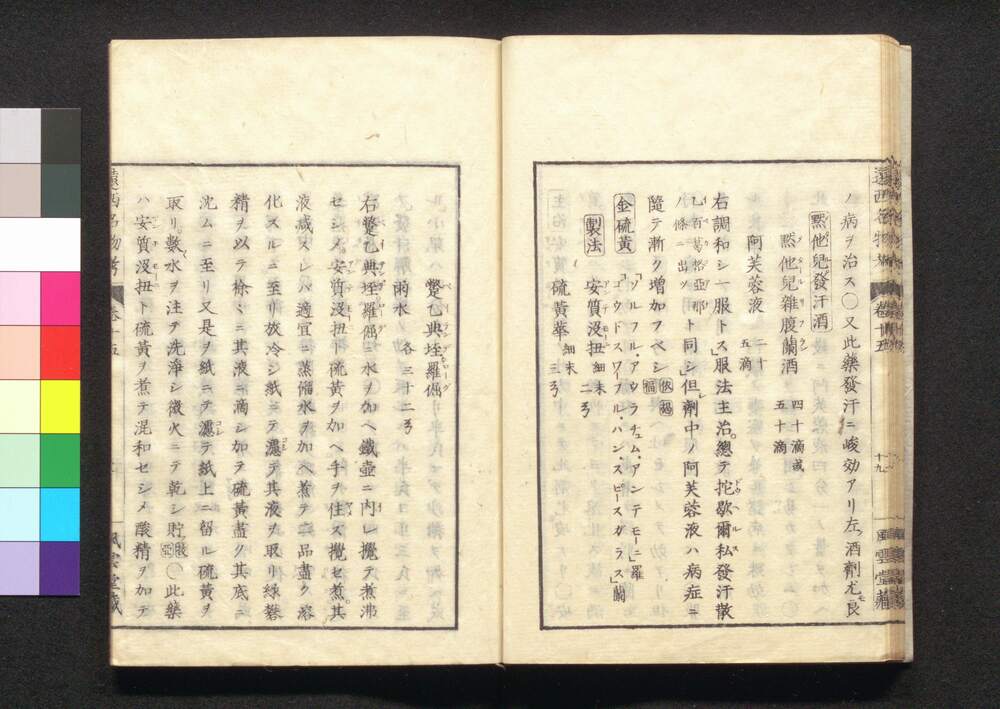 ノ病ヲ治ス〇又此藥發汗ニ峻効アリ左ノ酒劑尤良
黙他兒發汗酒
黙他兒雜腹蘭酒 四十滴或五十滴
阿芙蓉液 二十五滴
右調和シ一服トス」服法主治總テ挓歇爾私發汗散
ノ條ニ出ツト同シ」但劑中ノ阿芙蓉液ハ病症ニ
隨テ漸ク增加フベシ
金硫黄 「ソルフル・アウラチュム・アンテモーニ」羅「ゴウドスワーフル・ハン・スピースガラス」蘭
製法
安質没扭 細末 二
硫黄華 細末 三
蹩乜典垤羅倔
雨水 各三十二
右蹩乜典垤羅倔ニ水ヲ加ヘ鐵壺ニ内レ攪テ煮沸
セシメ安質没扭ト硫黄ヲ加ヘ手ヲ住ズ攪セ煮其
液減スレバ適宜ニ蒸餾水ヲ加ヘ煮テ二品盡ク溶
化スルニ至リ放冷シ紙ニテ濾テ其液ヲ取リ緑礬
精ヲ以テ徐々ニ其液ニ滴シ加テ硫黄盡ク其底ニ
沈ムニ至リ又是ヲ紙ニテ濾テ紙上ニ留ル硫黄ヲ
取リ數水ヲ注ヲ洗淨シ微火ニテ乾シ貯〇此藥
ハ安質没扭ト硫黄ヲ煮テ混和セシメ酸精ヲ加テ
遠西名物考
卷十五
十九
風雲堂藏